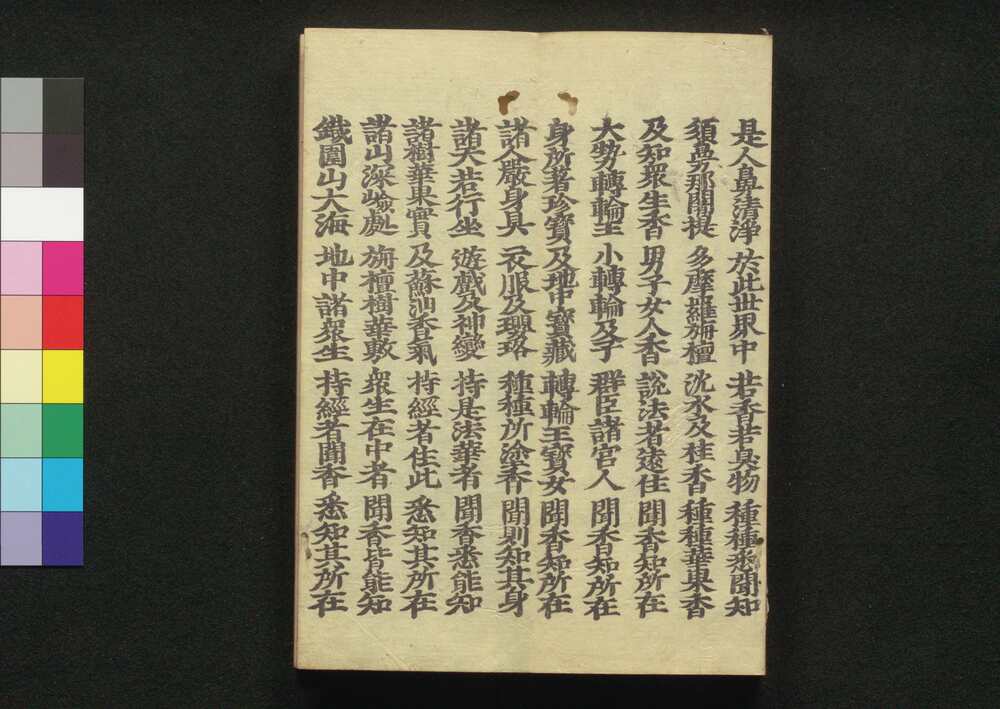 是人鼻清淨 於此世界中 若香若臭物 種種悉聞知
須曼那闍提 多摩羅栴檀 沈水及桂香 種種華果香
及知衆生香 男子女人香 說法者遠住 聞香知所在
大勢轉輪王 小轉輪及子 群臣諸宮人 聞香知所在
身所著珍寶 及地中寶藏 轉輪王寶女 聞香知所在
諸人嚴身具 衣服及瓔珞 種種所塗香 聞則知其身
諸天若行坐 遊戲及神變 持是法華者 聞香悉能知
諸樹華果實 及蘇油香氣 持經者住此 悉知其所在
諸山深嶮處 栴檀樹華敷 衆生在中者 聞香皆能知
鐵圍山大海 地中諸衆生 持經者聞香 悉知其所在